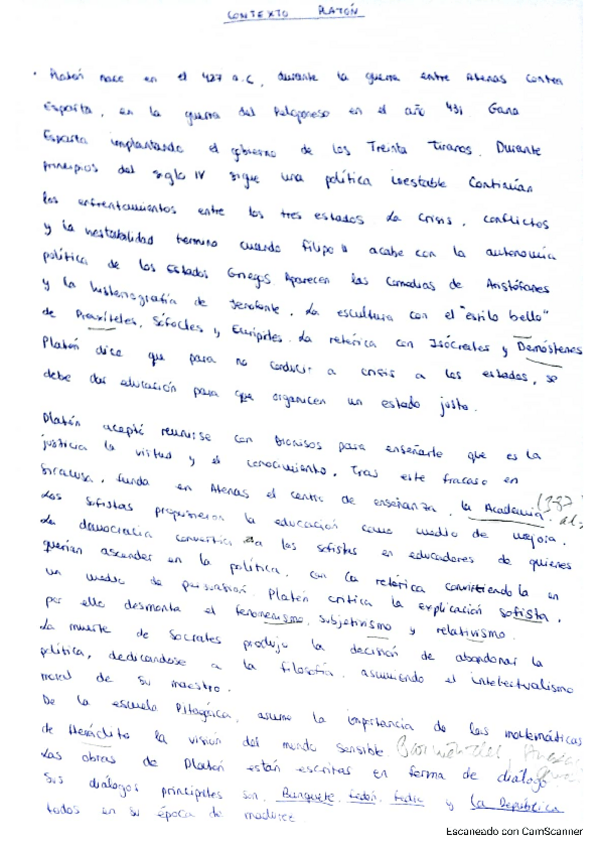 CONTEXTO PLATÓN
· Platón nace en el 427 a.C, durante la guerra entre Atenas contra
Esparta, en la guerra del Peloponeso en el año 431. Gana
Esparta implantando el gobierno de los Treinta Tiranos. Durante
principios del siglo IV sigue una política inestable Continúan
los enfrentamientos entre los tres estados. La crisis, conflictos
y la inestabilidad termino cuando Filipo II acabe con la autonomía
política de los Estados Griegos. Aparecen las Comedias de Aristófanes
y la historiografía de Jenofonte. La escultura con el "estilo bello"
de Praxíteles, Sófocles y Eurípides. La retórica con Isócrates y Demóstenes
Platón dice que para no conducir a crisis a los estados, se
debe dar educación para que organicen un estado justo.
Platón aceptó reunirse con Dionisos para enseñarle que es la
justicia la virtud y el conocimiento. Tras este fracaso en
Siracusa, funda en Atenas el centro de enseñanza, la Academia. (387
a.C)
Los sofistas propusieron la educación como medio de mejora.
La democracia convertía a los sofistas en educadores de quienes
querían ascender en la política, con la retórica convirtiendola en
un medio de persuasión. Platón critica la explicación sofista,
por ello desmonta el fenomenismo, subjetivismo y relativismo.
La muerte de Socrates produjo la decisión de abandonar la
política, dedicandose a la filosofía, asumiendo el intelectualismo
moral de su maestro.
De la escuela Pitagórica, asume la importancia de las matemáticas
de Heráclito la visión del mundo sensible. Parménides,
Las obras de Platón están escritas en forma de diálogo
Sus diálogos principales son, Banquete, Fedón, Fedro y la República
todos en su época de madurez.
Escaneado con CamScanner